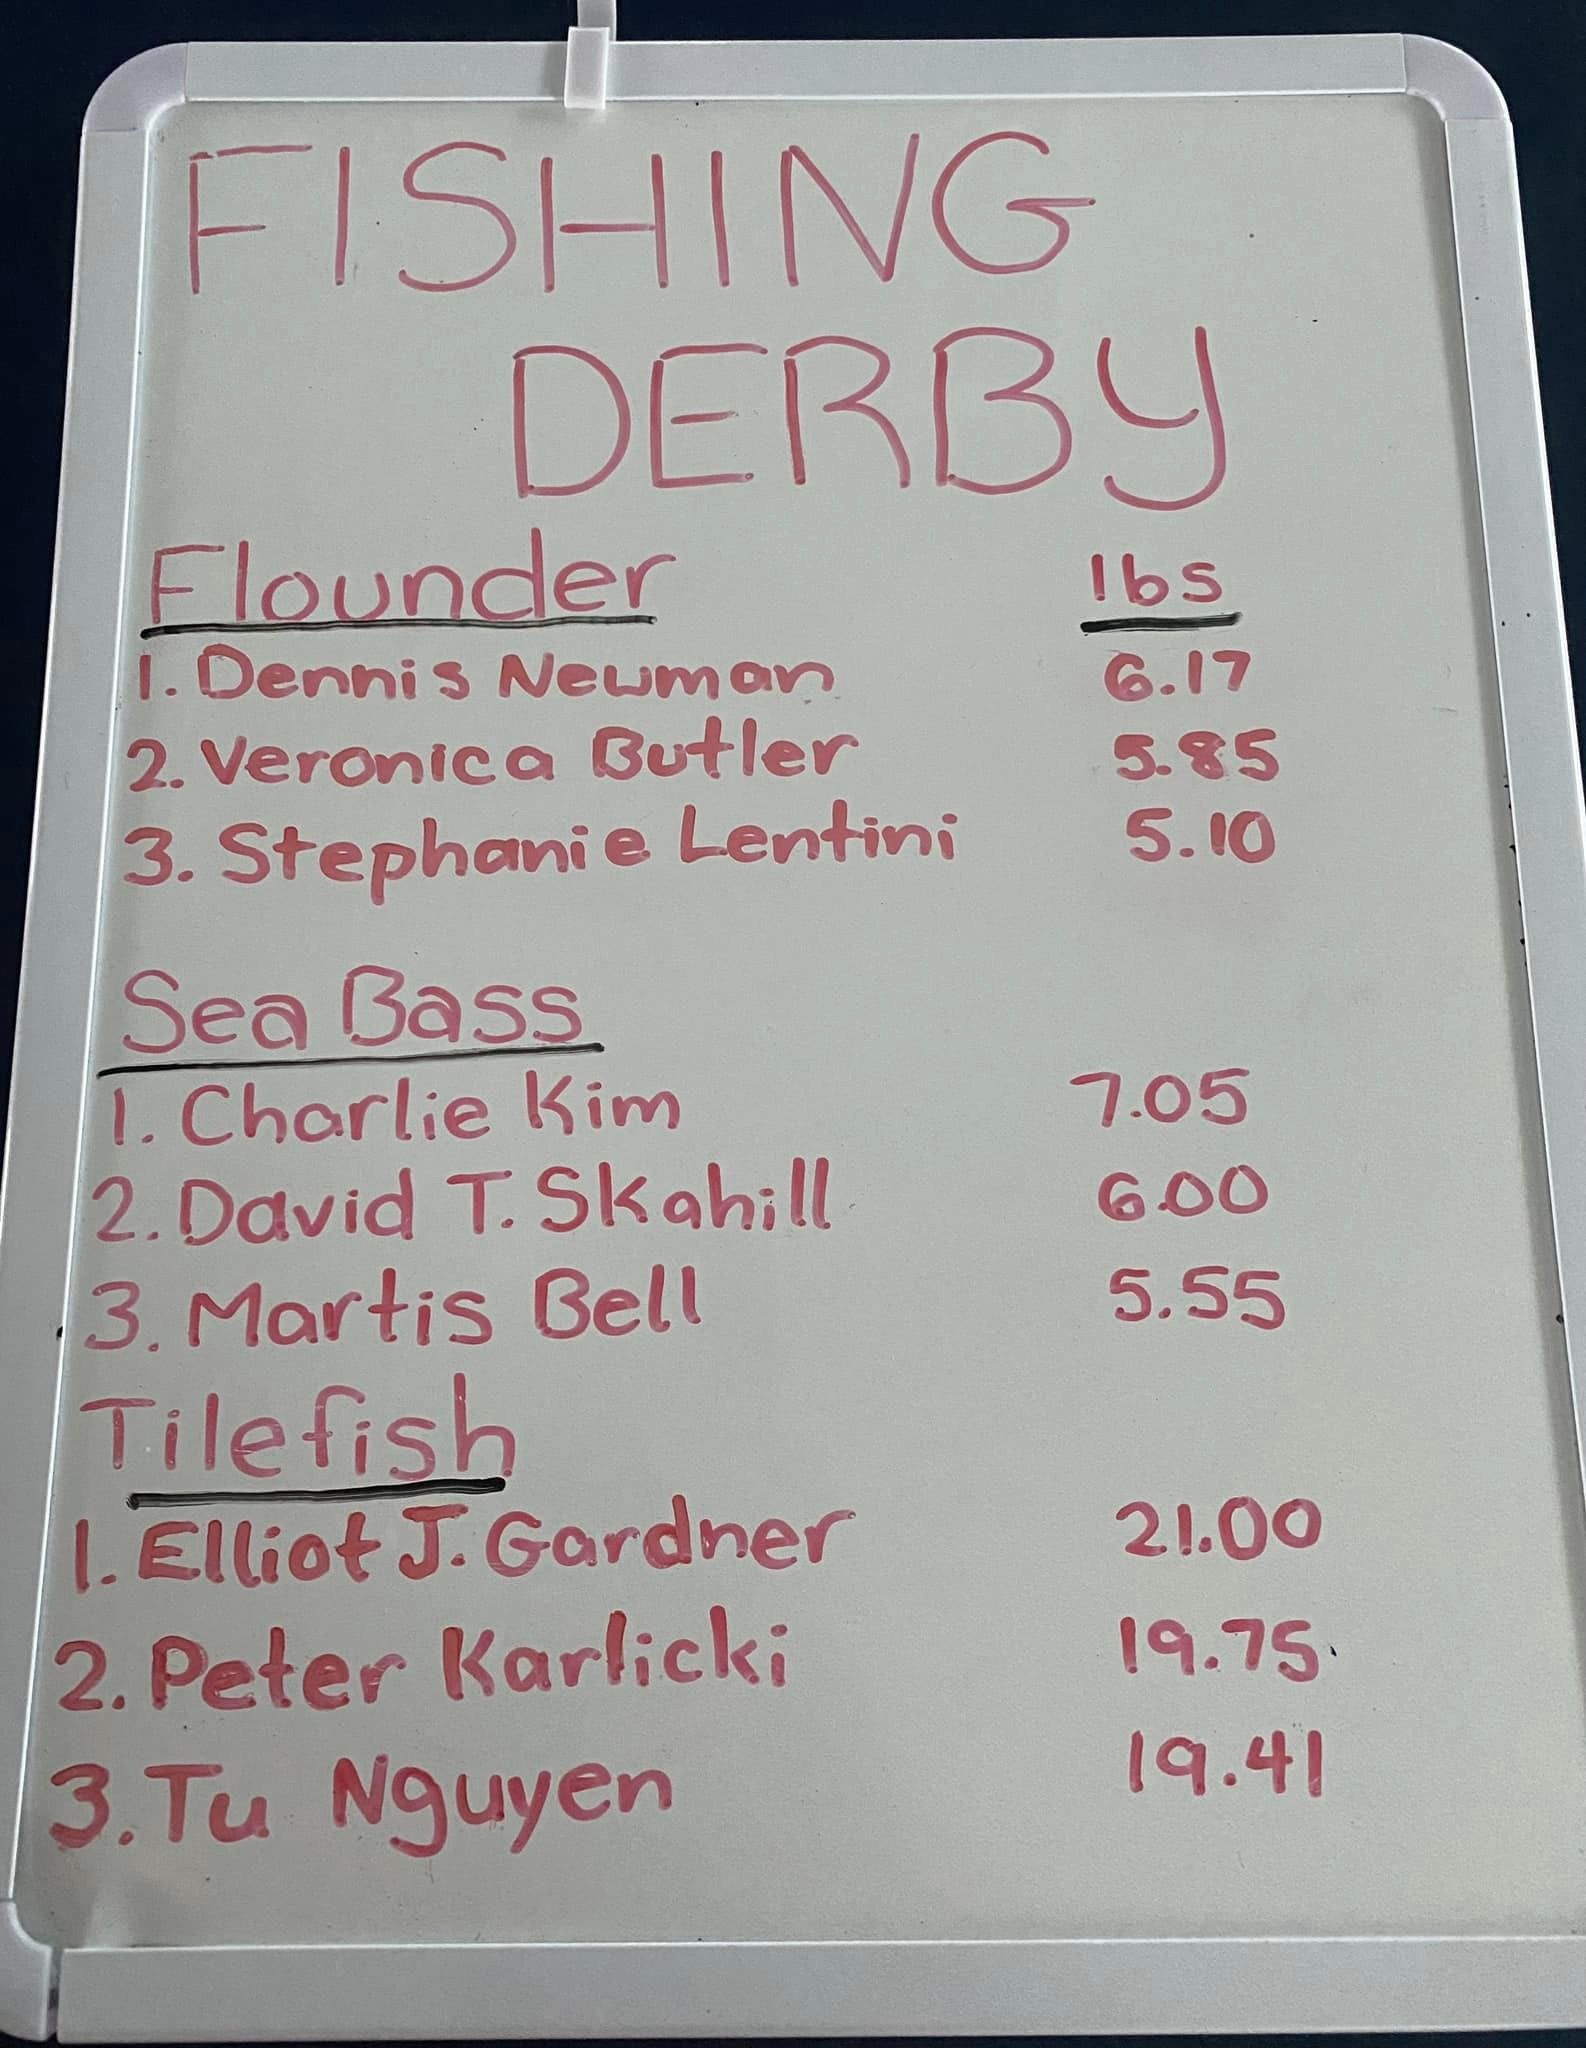 FISHING
DERBY
Flounder lbs
1. Dennis Newman 6.17
2. Veronica Butler 5.85
3. Stephanie Lentini 5.10
Sea Bass
1. Charlie Kim 7.05
2. David T. Skahill 6.00
3. Martis Bell 5.55
Tilefish
1. Elliot J. Gardner 21.00
2. Peter Karlicki 19.75
3. Tu Nguyen 19.41